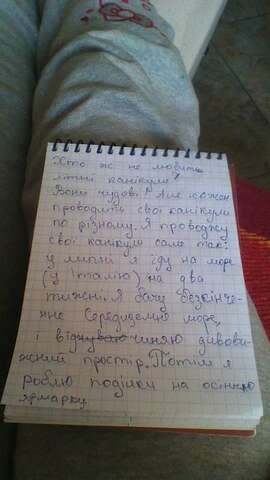 Хто ж не любить
літні канікули?
Вони чудові! Але кожен
проводить свої канікули
по різному. Я проводжу
свої канікули саме так:
у липні я їду на море
(у Італію) на два
тижні. Я бачу безкінче-
не Середземне море,
і відчуваю дивови-
жний простір. Потім я
роблю поділки на осінню
ярмарку.